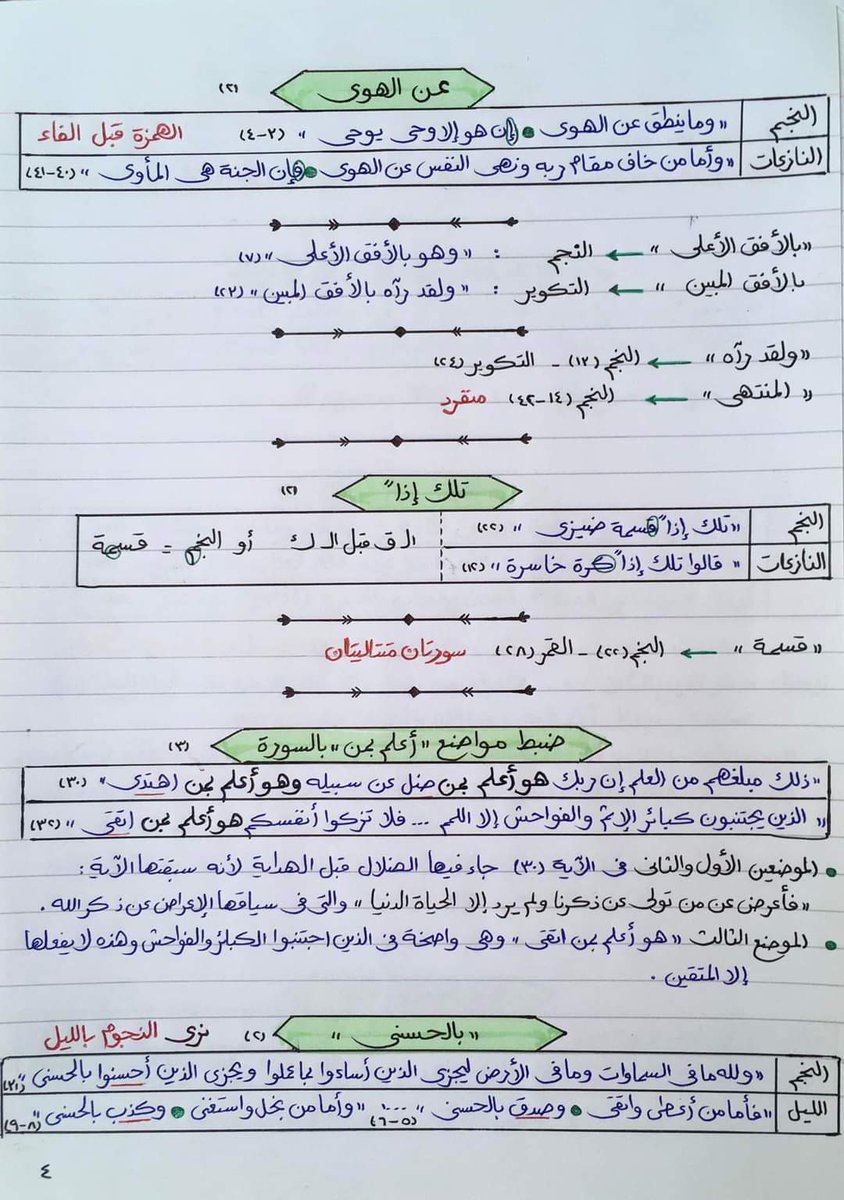 عن الهوى (٢)
النجم "وما ينطق عن الهوى • إن هو إلا وحي يوحى" (٣-٤) الهمزة قبل الفاء
النازعات "وأما من خاف مقام ربه ونهى النفس عن الهوى • فإن الجنة هي المأوى" (٤٠-٤١)
"بالأفق الأعلى" ← النجم : "وهو بالأفق الأعلى" (٧)
بالأفق المبين " ← التكوير : "ولقد رآه بالأفق المبين" (٢٣)
"ولقد رآه" ← النجم (١٣) - التكوير (٢٤)
"المنتهى" ← النجم (١٤-٤٢) منفرد
تلك إذاً (٢)
النجم "تلك إذاً قسمة ضيزى" (٢٢) الـ ق قبل الـ ك أو النجم = قسمة
النازعات "قالوا تلك إذاً كرة خاسرة" (١٢)
"قسمة" ← النجم (٢٢) - القمر (٢٨) سورتان متتاليتان
ضبط مواضع "أعلم بمن" بالسورة (٣)
"ذلك مبلغهم من العلم إن ربك هو أعلم بمن ضل عن سبيله وهو أعلم بمن اهتدى" (٣٠)
"الذين يجتنبون كبائر الإثم والفواحش إلا اللمم ... فلا تزكوا أنفسكم هو أعلم بمن اتقى" (٣٢)
• الموضعين الأول والثاني في الآية (٣٠) جاء فيها الضلال قبل الهداية لأنه سبقتها الآية :
"فأعرض عن من تولى عن ذكرنا ولم يرد إلا الحياة الدنيا" والتي في سياقها الإعراض عن ذكر الله .
• الموضع الثالث "هو أعلم بمن اتقى" وهي واضحة في الذين اجتنبوا الكبائر والفواحش وهذه لا يفعلها
إلا المتقين .
"بالحسنى" (٢) نرى النجوم بالليل
النجم "ولله ما في السماوات وما في الأرض ليجزي الذين أساءوا بما عملوا ويجزي الذين أحسنوا بالحسنى" (٣١)
الليل "فأما من أعطى واتقى • وصدق بالحسنى" (٥-٦) .... "وأما من بخل واستغنى • وكذب بالحسنى" (٨-٩)
٤